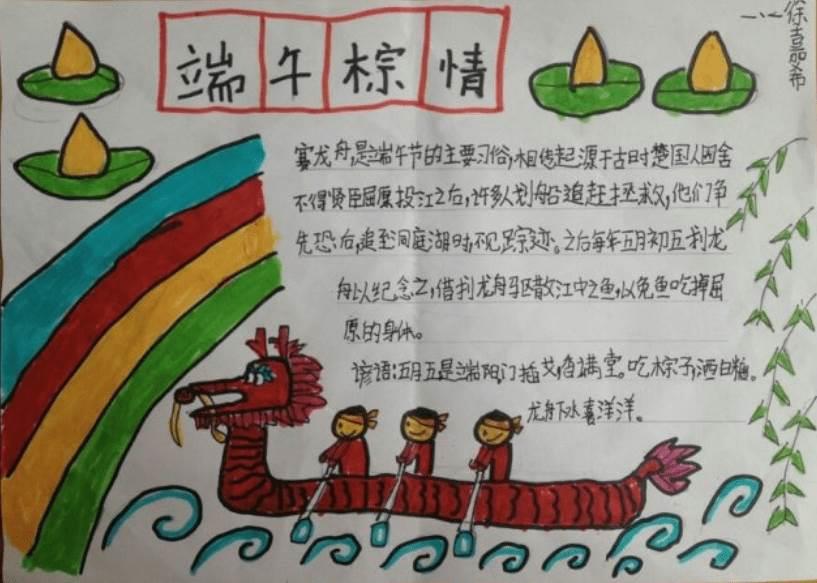 端午棕情
一心徐嘉希
赛龙舟,是端午节的主要习俗,相传起源于古时楚国人因舍
不得贤臣屈原投江之后,许多人划船追赶拯救,他们争
先恐后,追至洞庭湖时不见踪迹。之后每年五月初五划龙
舟以纪念之,借划龙舟驱散江中之鱼,以免鱼吃掉屈
原的身体。
谚语:五月五是端阳,门插艾,香满堂。吃棕子,洒白糖。
龙舟下水喜洋洋。